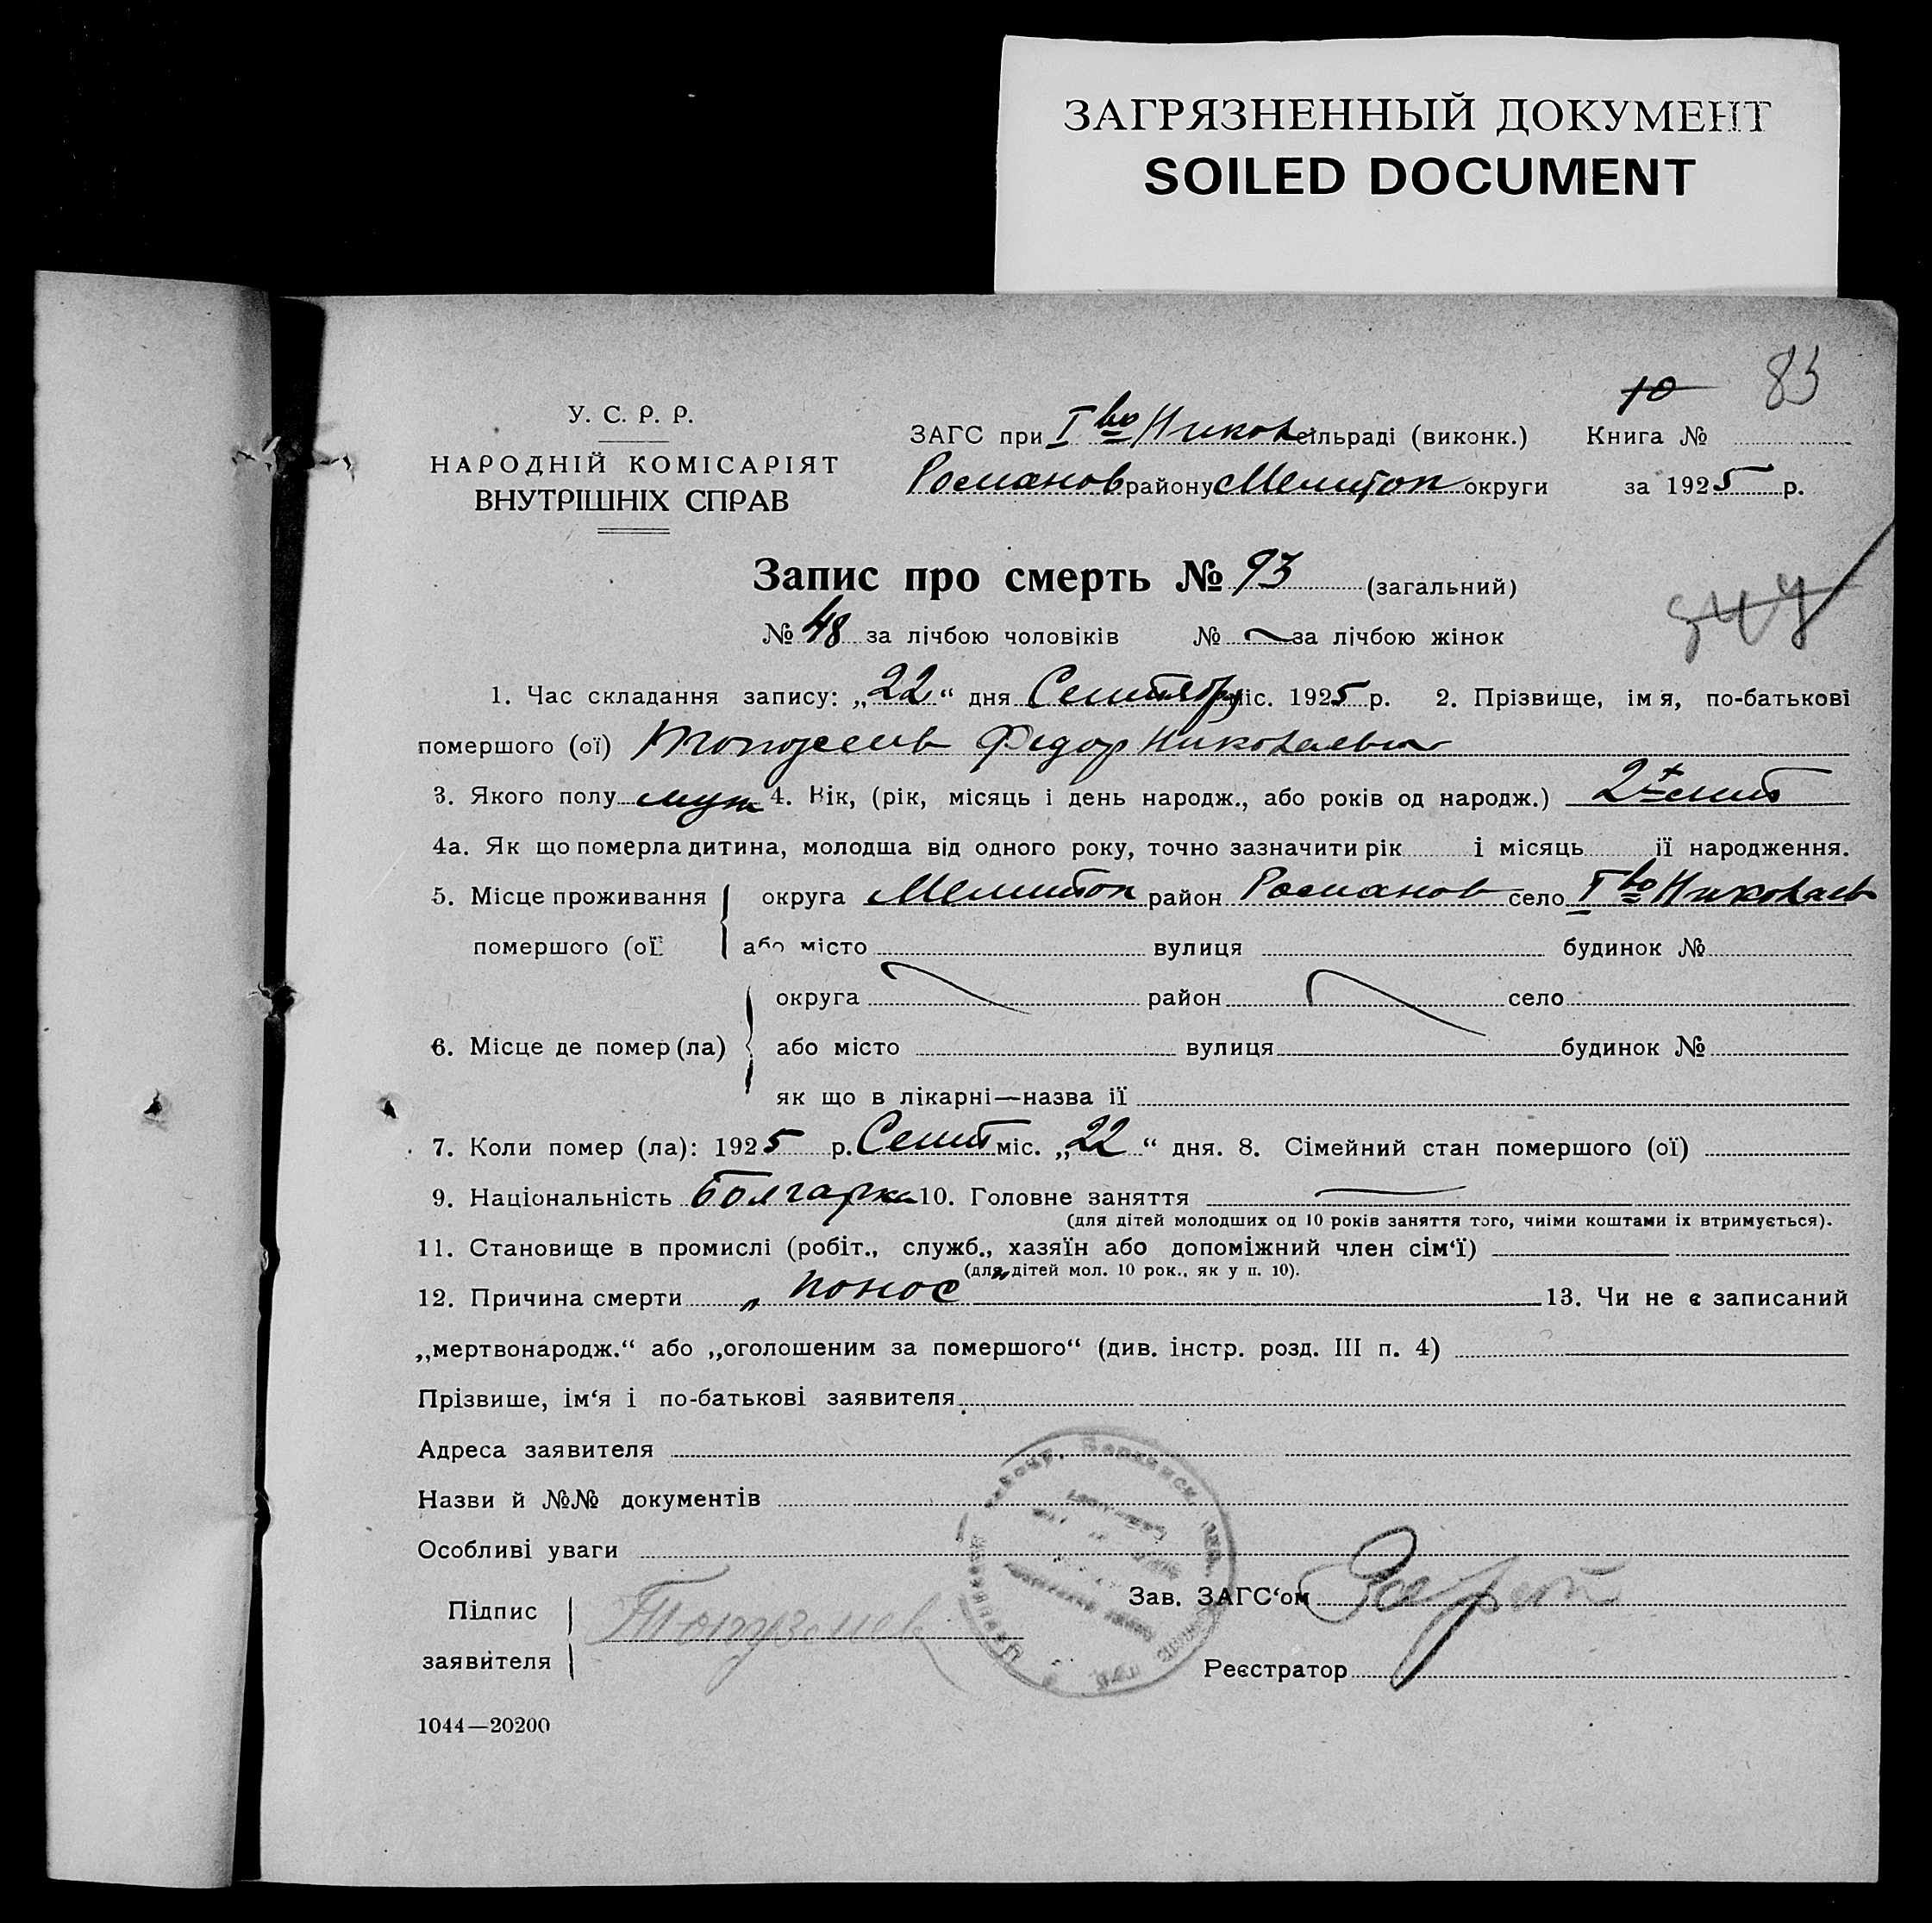 ЗАГРЯЗНЕННЫЙ ДОКУМЕНТ
SOILED DOCUMENT
10 83
У. С. Р. Р.
НАРОДНІЙ КОМІСАРІЯТ
ВНУТРІШНІХ СПРАВ
ЗАГС при І во Никол сільраді (виконк.) Книга №
Романов району Мелитоп округи за 1925 р.
Запис про смерть № 93 (загальний)
№ 48 за лічбою чоловіків № за лічбою жінок
1. Час складання запису: „22“ дня Сентября міс. 1925 р. 2. Прізвище, імя, по-батькові
помершого (ої) Федор Николаевич
3. Якого полу муж 4. Вік, (рік, місяць і день народж., або років од народж.)
4а. Як що померла дитина, молодша від одного року, точно зазначити рік і місяць ії народження.
5. Місце проживання округа Мелитоп район Романов село І во Николаев
помершого (ої або місто вулиця будинок №
округа район село
6. Місце де помер (ла) або місто вулиця будинок №
як що в лікарні—назва ії
7. Коли помер (ла): 1925 р. Сент міс. „22“ дня. 8. Сімейний стан помершого (ої)
9. Національність Болгарка 10. Головне заняття
(для дітей молодших од 10 років заняття того, чиіми коштами іх втримується).
11. Становище в промислі (робіт., служб., хазяїн або допоміжний член сім‘ї)
(для дітей мол. 10 рок., як у п. 10).
12. Причина смерти „ понос 13. Чи не є записаний
„мертвонародж.“ або „оголошеним за помершого“ (див. інстр. розд. III п. 4)
Прізвише, ім‘я і по-батькові заявителя
Адреса заявителя
Назви й №№ документів
Особливі уваги
Підпис
заявителя
Зав. ЗАГС‘ом
Реєстратор
1044—20200